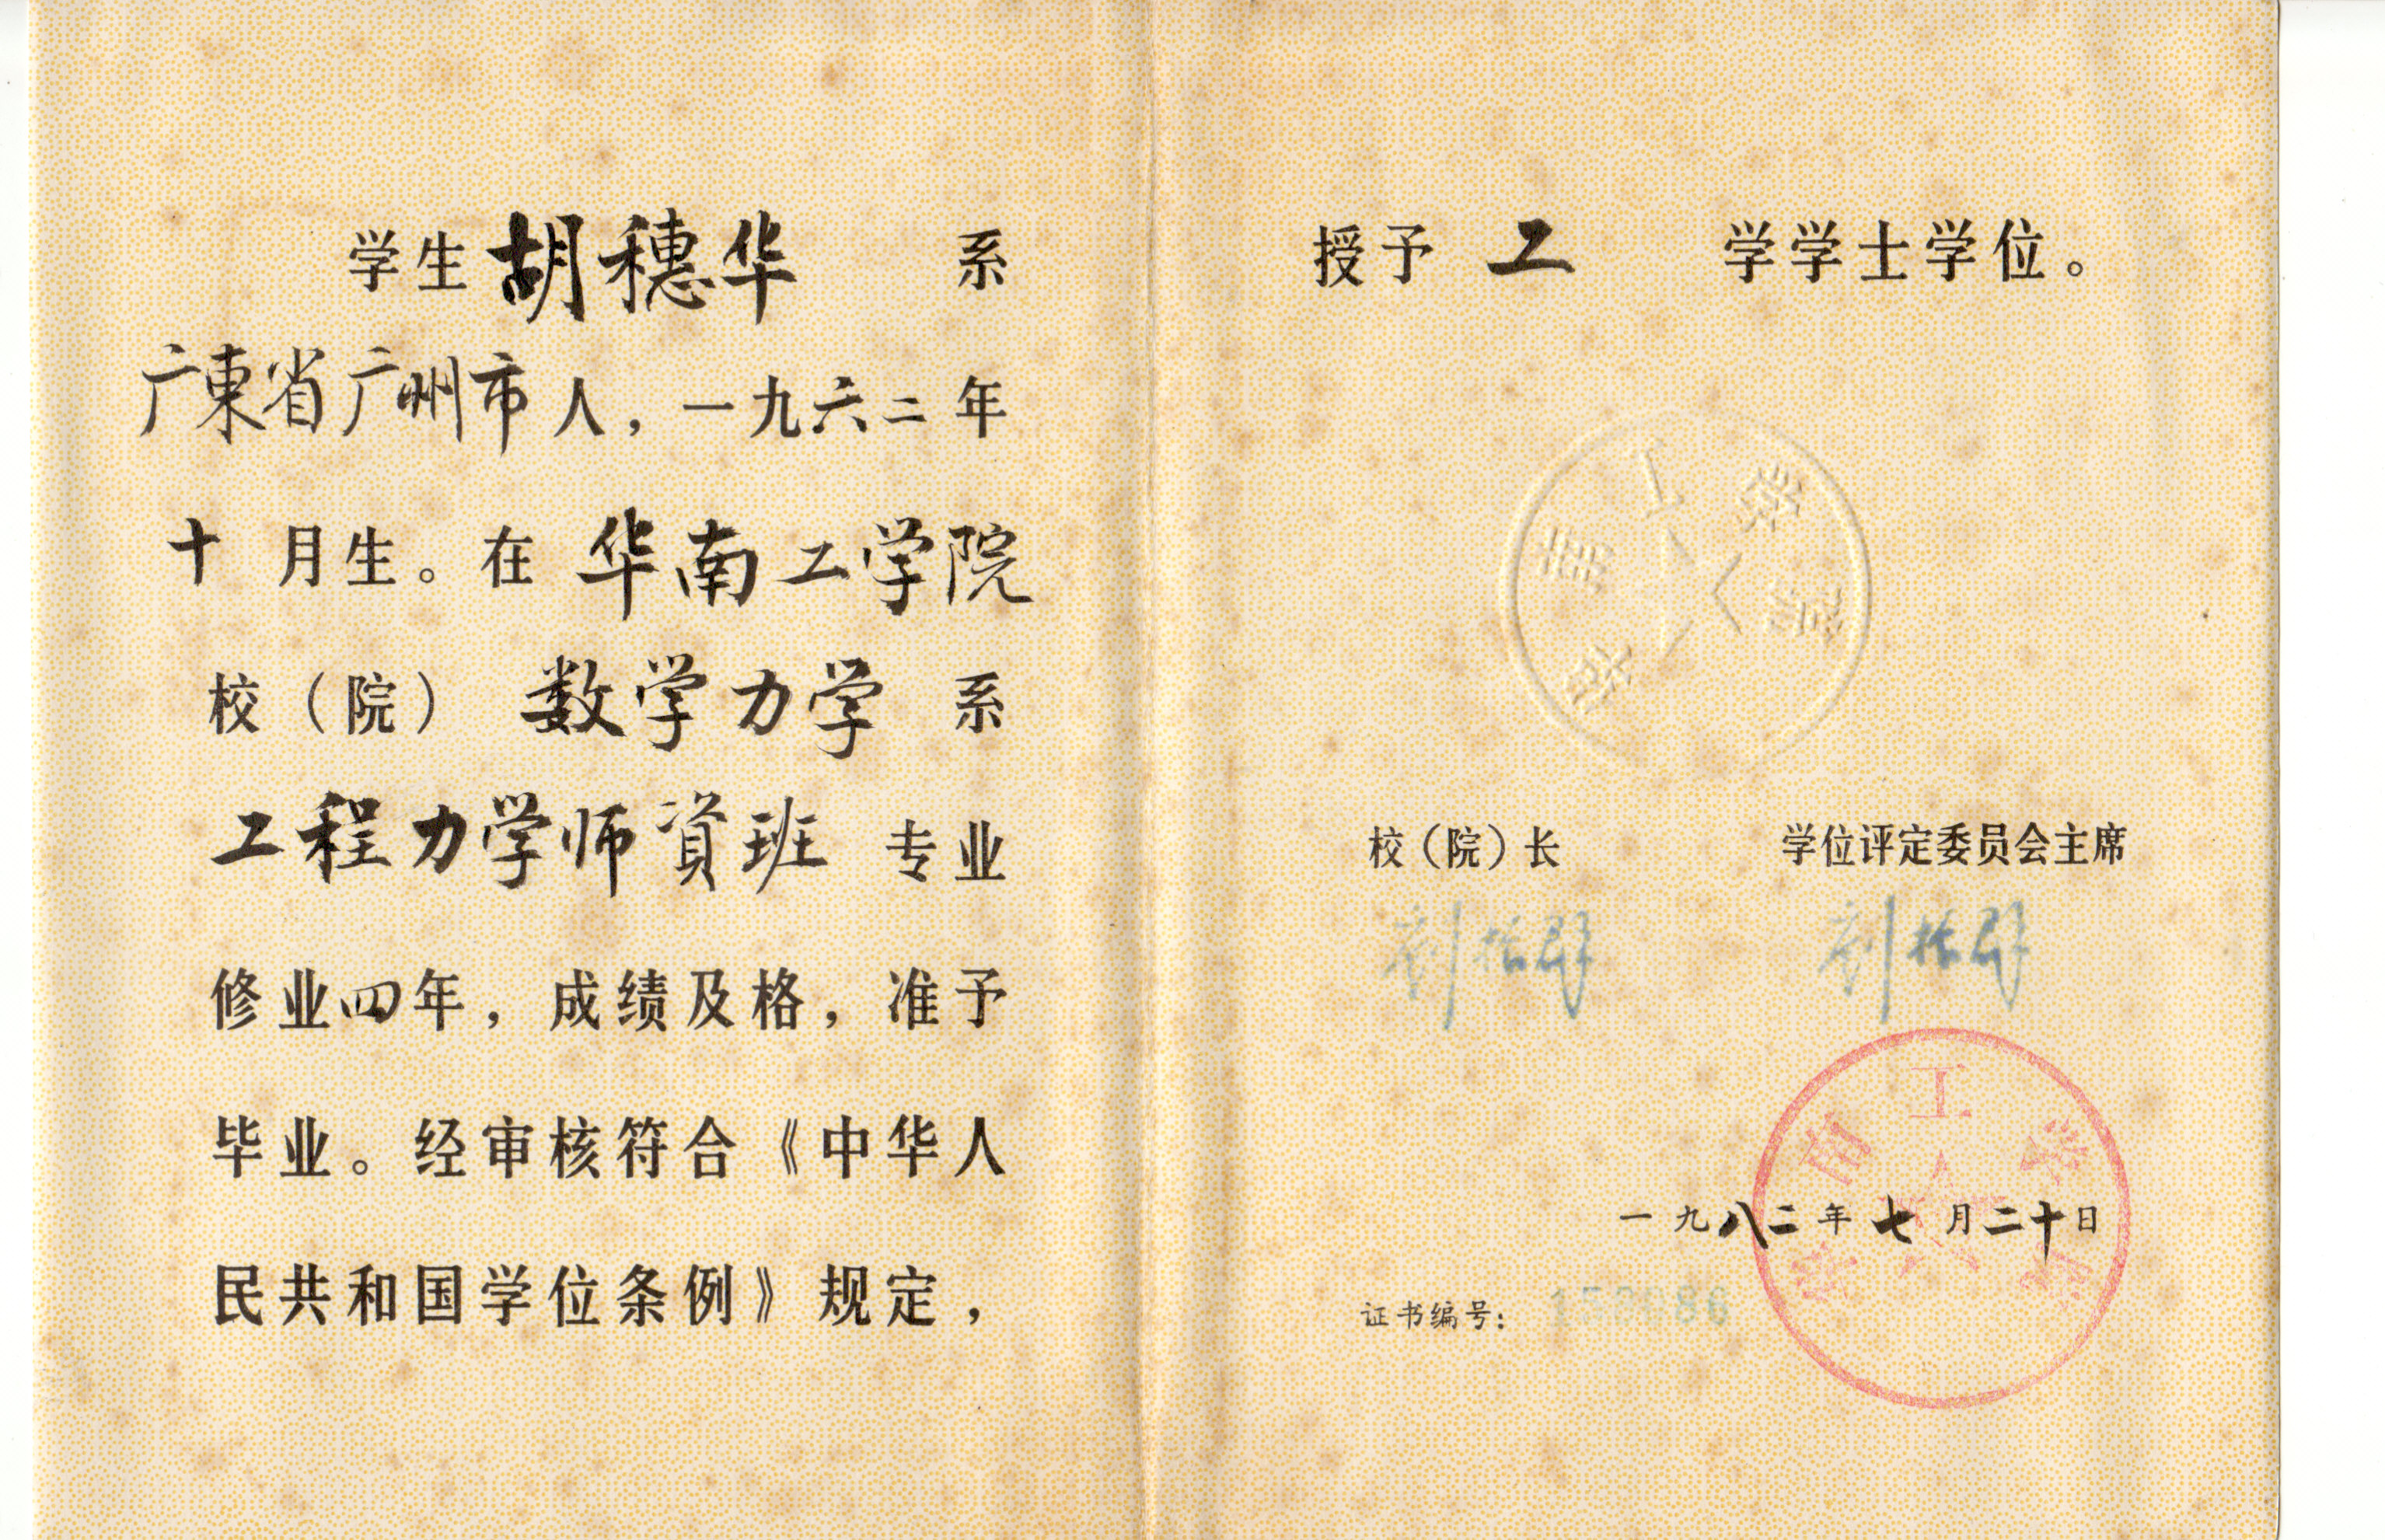 学生胡穗华 系
广東省广州市人，一九六二年
十 月生。在 华南工学院
校（院） 数学力学 系
工程力学师資班 专业
修业四年，成绩及格，准予
毕业。经审核符合《中华人
民共和国学位条例》规定，
授予 工 学学士学位。
校（院）长 学位评定委员会主席
华南工学院
一九八二年七月二十日
证书编号：